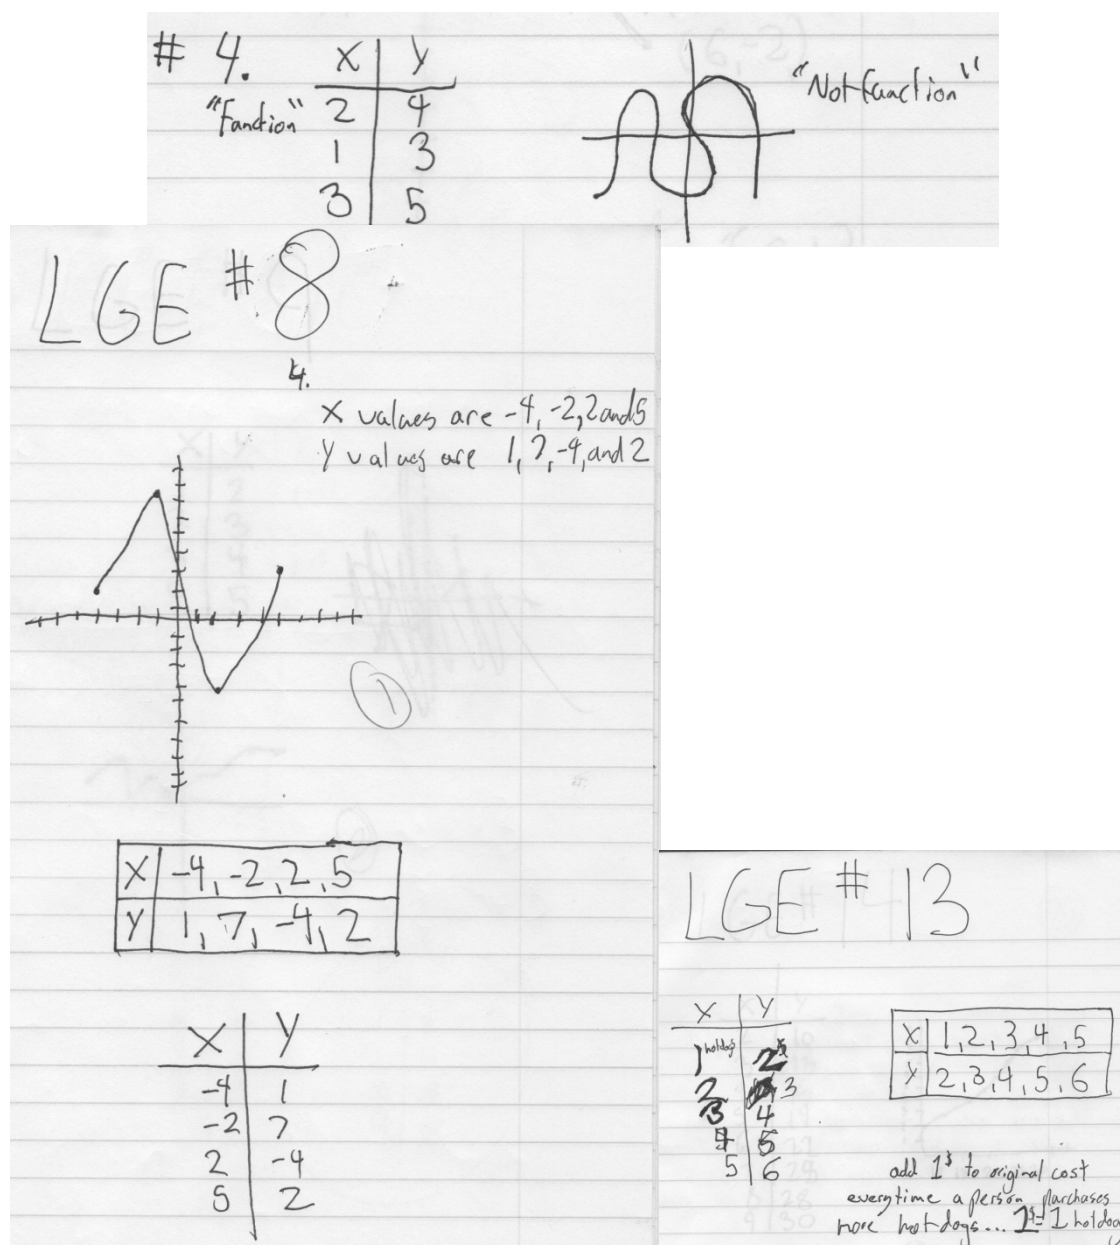 # 4.
X Y
"Function"
2 4
1 3
3 5
"Not function"
LGE #8
4.
X values are -4, -2, 2 and 5
Y values are 1, 7, -4, and 2
1
X -4, -2, 2, 5
Y 1, 7, -4, 2
X Y
-4 1
-2 7
2 -4
5 2
LGE #13
X Y
1 hotdogs 2$
2 3
3 4
4 5
5 6
X 1, 2, 3, 4, 5
Y 2, 3, 4, 5, 6
add 1$ to original cost
everytime a person purchases
more hotdogs... 1$= 1 hotdog